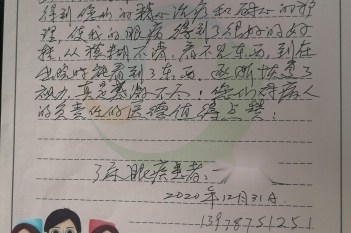 得到您们的精心治疗和耐心的护
理,使我的眼病得到了很好的好
转,从模糊不清,看不见东西,到在
出院时能看到了东西,逐渐恢复了
视力,真是感激不尽!您们对病人
的负责任的医德值得点赞!
了床眼疾患者:
2020年12月31日
13978751251